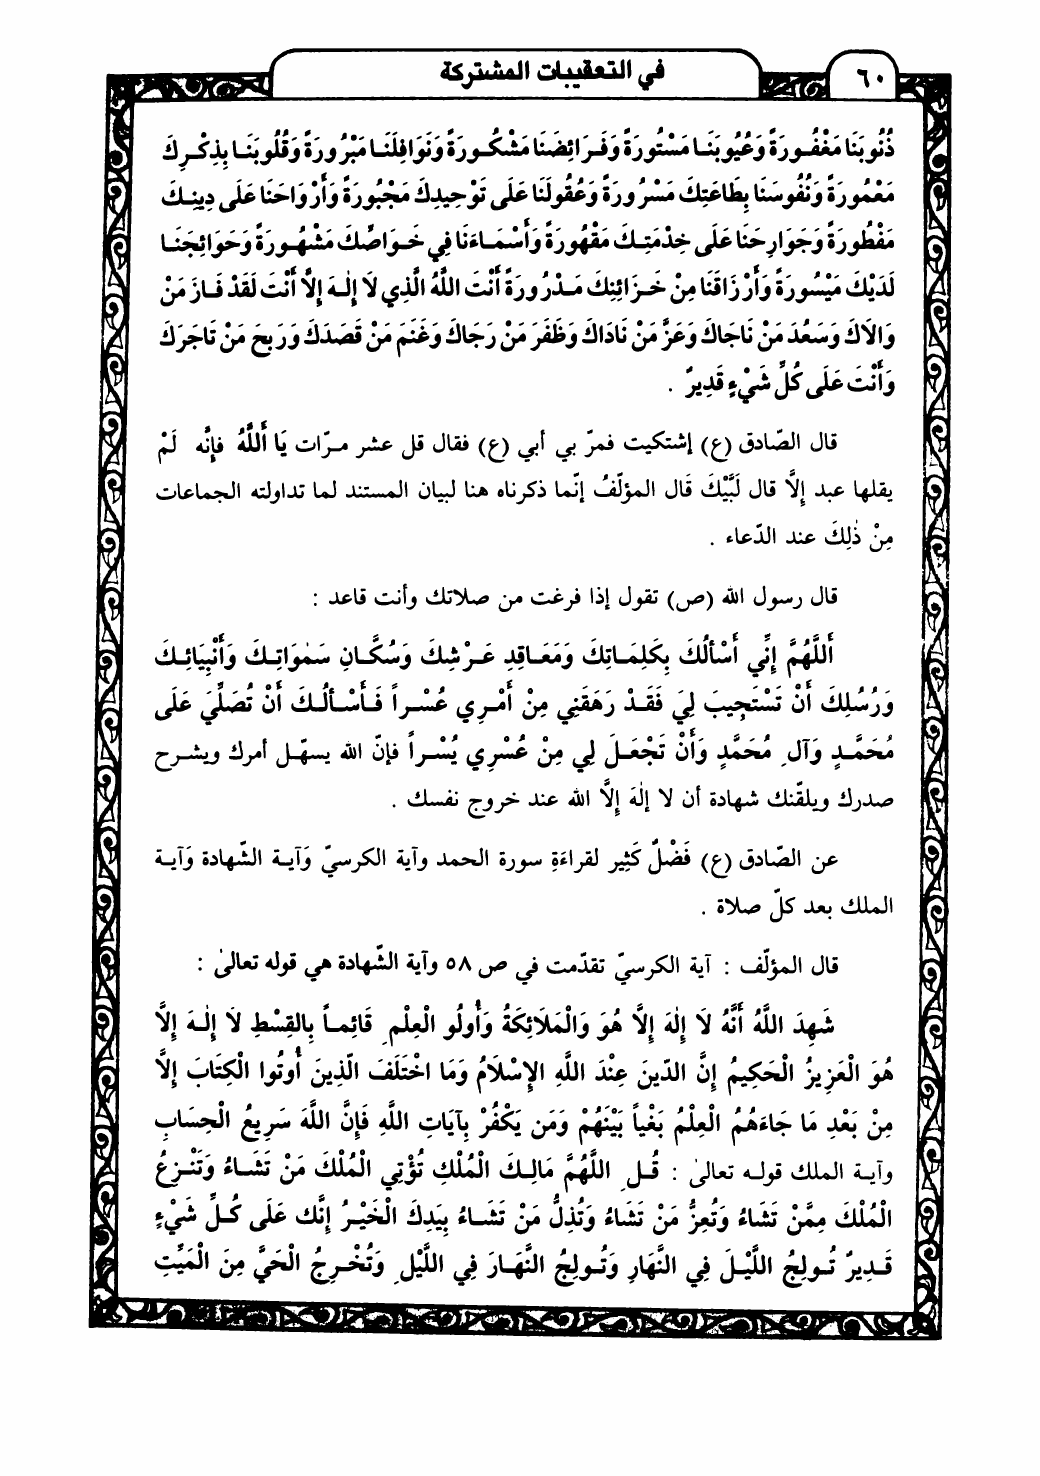 ٦٠
في التعقيبات المشتركة
ذُنُوبَنَا مَغْفُورَةً وَعُيُوبَنَا مَسْتُورَةً وَفَرَائِضَنَا مَشْكُورَةً وَنَوَافِلَنَا مَبْرُورَةً وَقُلُوبَنَا بِذِكْرِكَ
مَعْمُورَةً وَنُفُوسَنَا بِطَاعَتِكَ مَسْرُورَةً وَعُقُولَنَا عَلَى تَوْحِيدِكَ مَجْبُورَةً وَأَرْوَاحَنَا عَلَى دِينِكَ
مَفْطُورَةً وَجَوَارِحَنَا عَلَى خِدْمَتِكَ مَقْهُورَةً وَأَسْمَاءَنَا فِي خَوَاصِّكَ مَشْهُورَةً وَحَوَائِجَنَا
لَدَيْكَ مَيْسُورَةً وَأَرْزَاقَنَا مِنْ خَزَائِنِكَ مَدْرُورَةً أَنْتَ اللَّهُ الَّذِي لَا إِلٰهَ إِلَّا أَنْتَ لَقَدْ فَازَ مَنْ
وَالَاكَ وَسَعُدَ مَنْ نَاجَاكَ وَعَزَّ مَنْ نَادَاكَ وَظَفَرَ مَنْ رَجَاكَ وَغَنَمَ مَنْ قَصَدَكَ وَرَبِحَ مَنْ تَاجَرَكَ
وَأَنْتَ عَلَى كُلِّ شَيْءٍ قَدِيرٌ .
قال الصّادق (ع) إشتكيت فمرّ بي أبي (ع) فقال قل عشر مرّات يَا أَللَّهُ فإنَّه لَمْ
يقلها عبد إِلَّا قال لَبَّيْكَ قَال المؤلّفُ إنّما ذكرناه هنا لبيان المستند لما تداولته الجماعات
مِنْ ذٰلِكَ عند الدّعاء .
قال رسول الله (ص) تقول إذا فرغت من صلاتك وأنت قاعد :
أَللَّهُمَّ إِنِّي أَسْأَلُكَ بِكَلِمَاتِكَ وَمَعَاقِدِ عَرْشِكَ وَسُكَّانِ سَمٰوَاتِكَ وَأَنْبِيَائِكَ
وَرُسُلِكَ أَنْ تَسْتَجِيبَ لِيَ فَقَدْ رَهَقَنِي مِنْ أَمْرِي عُسْراً فَأَسْأَلُكَ أَنْ تُصَلِّيَ عَلَى
مُحَمَّدٍ وَآلِ مُحَمَّدٍ وَأَنْ تَجْعَلَ لِي مِنْ عُسْرِي يُسْراً فإنّ الله يسهّل أمرك ويشرح
صدرك ويلقّنك شهادة أن لا إلٰهَ إِلَّا الله عند خروج نفسك .
عن الصّادق (ع) فَضْلٌ كَثِير لقراءَةِ سورة الحمد وآية الكرسيّ وَآية الشّهادة وَآية
الملك بعد كلّ صلاة .
قال المؤلّف : آية الكرسيّ تقدّمت في ص ٥٨ وآية الشّهادة هي قوله تعالىٰ :
شَهِدَ اللَّهُ أَنَّهُ لَا إِلٰهَ إِلَّا هُوَ وَالْمَلَائِكَةُ وَأُولُو الْعِلْمِ قَائِماً بِالْقِسْطِ لَا إِلٰهَ إِلَّا
هُوَ الْعَزِيزُ الْحَكِيمُ إِنَّ الدّينَ عِنْدَ اللَّهِ الإِسْلَامُ وَمَا اخْتَلَفَ الَّذِينَ أُوتُوا الْكِتَابَ إِلَّا
مِنْ بَعْدِ مَا جَاءَهُمُ الْعِلْمُ بَغْياً بَيْنَهُمْ وَمَن يَكْفُرْ بِآيَاتِ اللَّهِ فَإِنَّ اللَّهَ سَرِيعُ الْحِسَابِ
وآية الملك قوله تعالىٰ : قُلِ اللَّهُمَّ مَالِكَ الْمُلْكِ تُؤْتِي الْمُلْكَ مَنْ تَشَاءُ وَتَنْزِعُ
الْمُلْكَ مِمَّنْ تَشَاءُ وَتُعِزُّ مَنْ تَشَاءُ وَتُذِلُّ مَنْ تَشَاءُ بِيَدِكَ الْخَيْرُ إِنَّكَ عَلَى كُلِّ شَيْءٍ
قَدِيرٌ تُولِجُ اللَّيْلَ فِي النَّهَارِ وَتُولِجُ النَّهَارَ فِي اللَّيْلِ وَتُخْرِجُ الْحَيَّ مِنَ الْمَيِّتِ